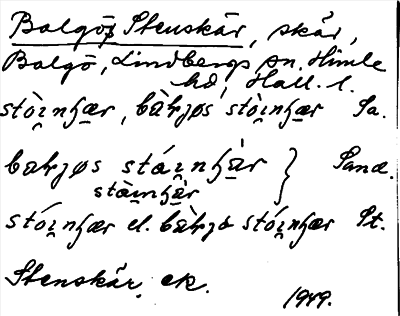 Balgös Stenskär, skär,
Balgö, Lindbergs sn. Himle
hd, Hall. l.
stòi̯nʃæ̀r, bàʟjøs stòi̯nʃær Sa.
bàʟjøs stói̯nʃæ̀r } Sand.
stòi̯nʃæ̀r
stói̯nʃær el. bàʟjø stói̯nʃær St.
Stenskär, ek.
1949.